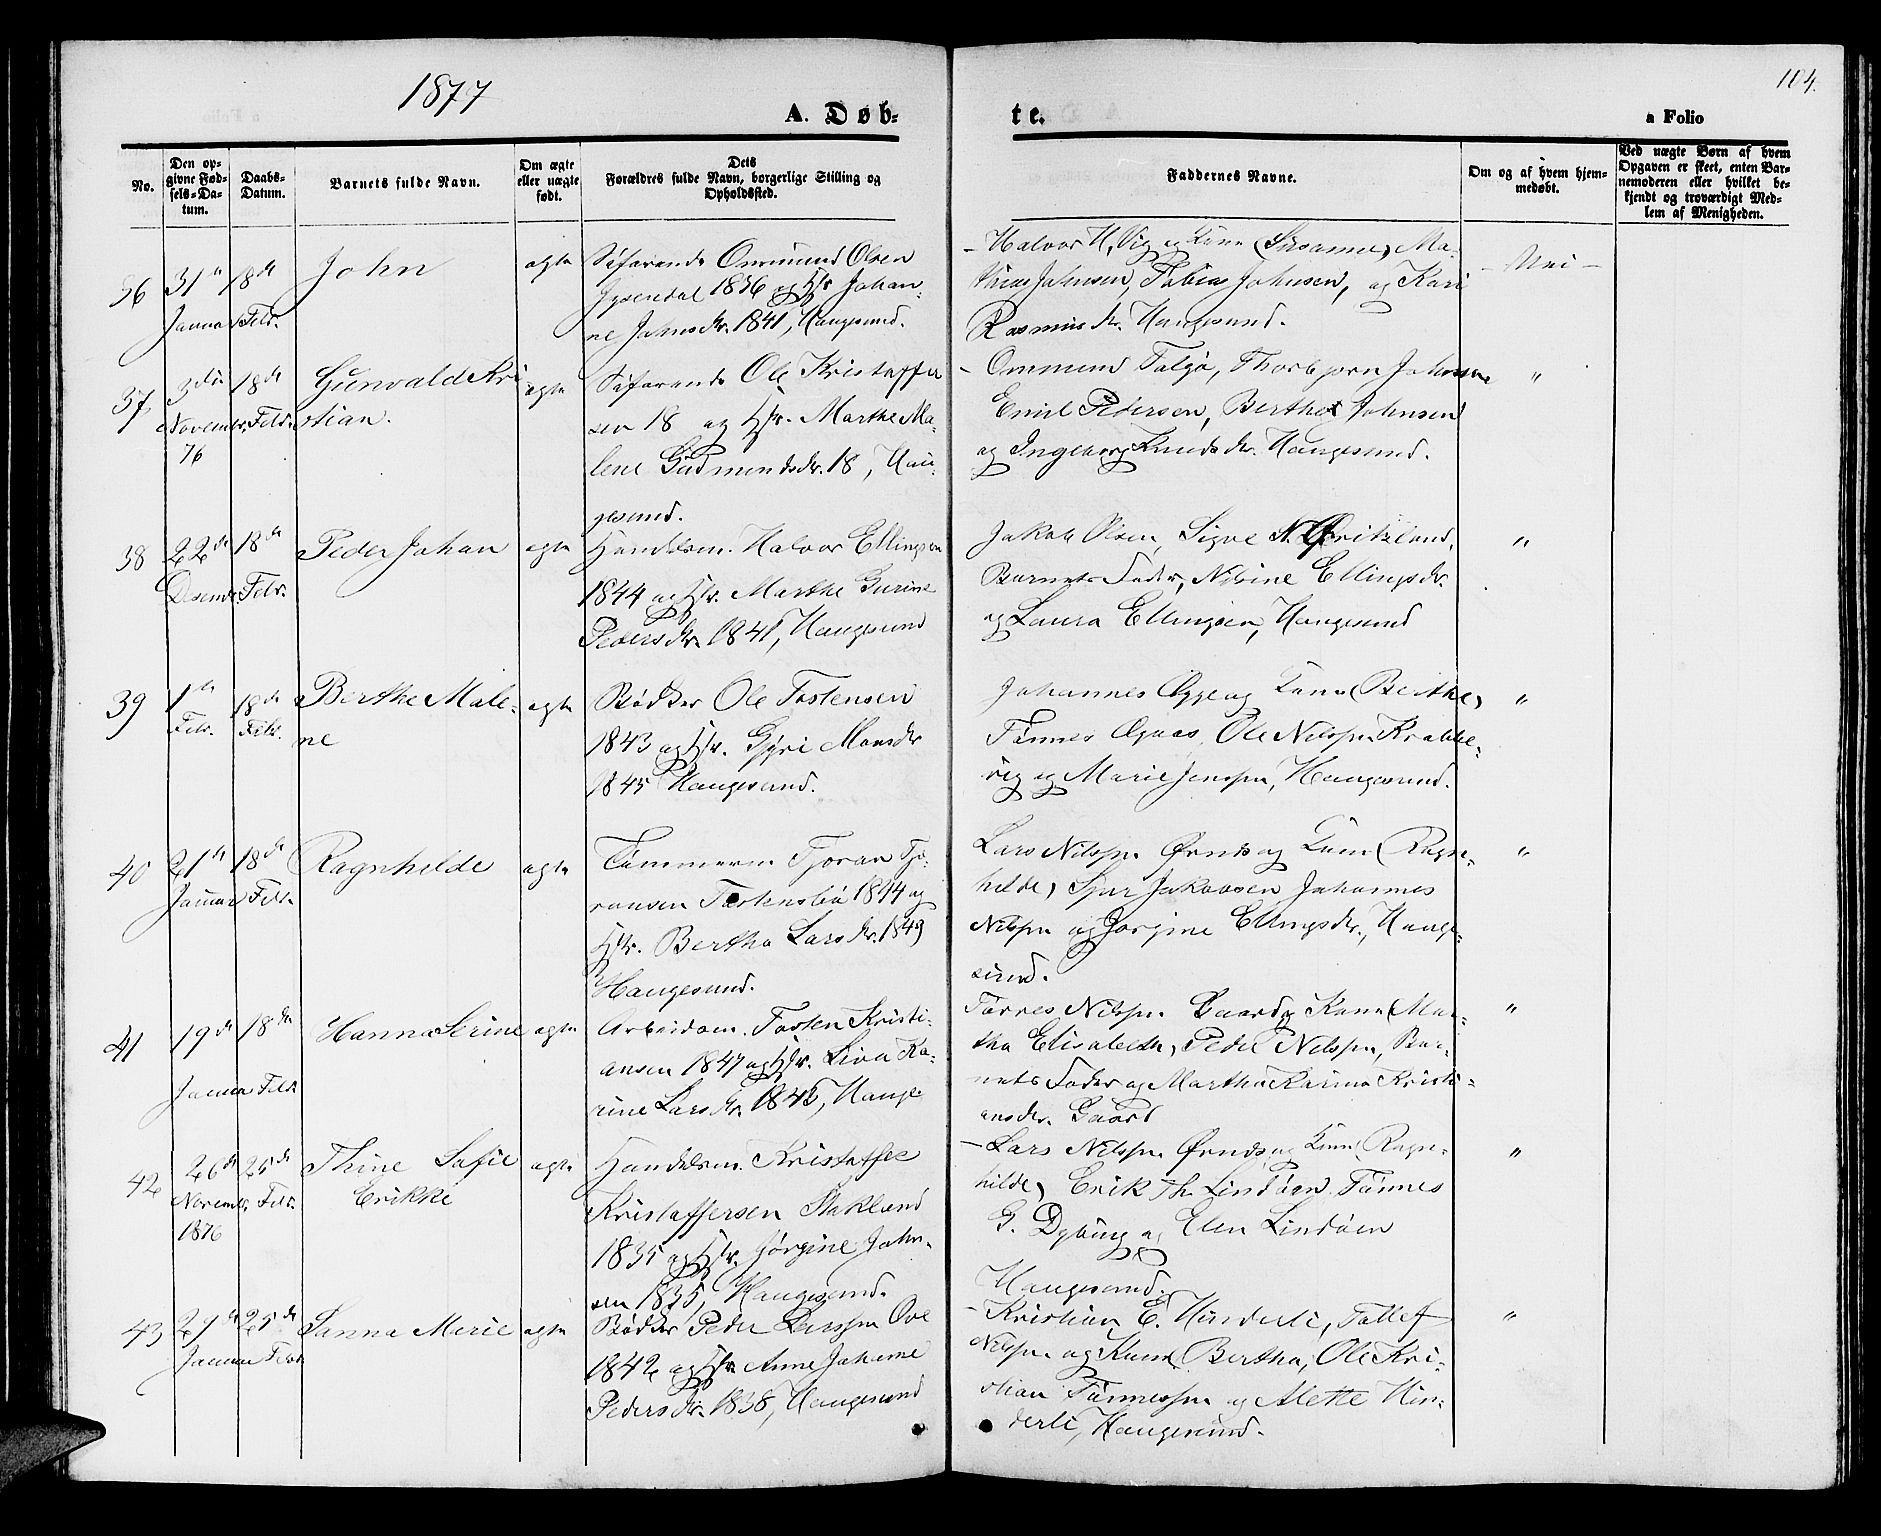 1877
104.
A. Døb-
te.
a Folio
No.
Den op-
givne Fød-
sels-Da-
tum.
Daabs-
Datum.
Barnets fulde Navn.
Om ægte
eller uægte
født.
Dets
Forældres fulde Navn, borgerlige Stilling og
Opholdssted.
Faddernes Navne.
Om og af hvem hjem-
medøbt.
Ved uægte Børn af hvem
Opgaven er skeet, enten Bar-
nemoderen eller hvilket be-
kjendt og troværdigt Med-
lem af Menigheden.
36
31te
Januar
18de
Febr.
John
ægte
Søfarende Ommund Olsen
1836 og Hstr Johan-
ne Johnsdtr. 1841, Haugesund.
- Halvor H. Vig og Kone (Susanne) Ma-
thias Johnsen, Tobias Johnsen, og Kari
Rasmusdtr. Haugesund.
- Nei -
37
3die
Novembr.
76
18de
Febr.
Gunvald Kri
stian.
ægte
Søfarende Ole Kristoffer
sen 18 og Hstr. Marthe Ma-
lene Gudmundsdtr. 18 , Hau-
gesund.
- Ommund Talgø, Thorbjørn Johnsen
Emil Pedersen, Berthe Johnsen
og Ingeborg Knudsdtr. Haugesund.
"
38
22de
Desembr.
18de
Febr.
Peder Johan
ægte
Handelsm. Halvor Ellingsen
1844 og Hstr. Marthe Gurine
Pedersdtr. 1841, Haugesund
Jakob Olsen, Signe N.
Barnets Fader, Nilsine Ellingsdtr.
og Laura Ellingsen, Haugesund
"
39
1te
Febr.
18de
Febr.
Berthe Male-
ne
ægte
Bødker Ole Tostensen
1843 og Hstr. Gyri Monsdtr
1845 Haugesund.
Johannes Øgje og Kone (Berthe)
Tønnes Ole Nilsson Krabbe-
vig og Marie Jensen, Haugesund.
"
40
21de
Januar
18de
Febr.
Ragnhilde
ægte
Tømmerm Tjoran Tjo-
ransen Tostensbø 1844 og
Hstr. Bertha Larsdtr. 1849
Haugesund.
Lars Nilssen Ørnds og Kone (Ragn-
hilde) Sjur Jakobsen Johannes
Nilssen og Jorgine Ellingsdtr., Hauge-
sund.
"
41
19de
Januar
18de
Febr
Hanna Serine
ægte
Arbeidsm. Tosten Kristi-
ansen 1847 og Hstr. Lina Ka-
rine Larsdtr. 1843, Hauge
Torres Nilssen Gaard og Kone (Mar-
tha Elisabeth) Peder Nilssen, Bar-
nets Fader og Martha Karina Kristi-
ansdtr. Gaard
"
42
26de
Novembr.
1876
25de
Febr.
Thine Sofie
Erikke
ægte
Handelsm. Kristoffer
Kristoffersen Stakland
1835 og Hstr. Jørgine John-
sen 1835, Haugesund.
- Lars Nilssen Ørnds og Kone (Ragn-
hilde) Erik Th. Lindøen Tønnes
G. Dybing og Elen Lindøen
Haugesund.
"
43
29de
Januar
25de
Febr
Sanna Marie
ægte
Bødker Peder Larssen Ove
1842 og Hstr Anne Johanne
Pedersdtr. 1838, Haugesund
- Kristian E. Hinderli, Tollef
Nilssen og Kone Bertha, Ole Kri-
stian Tønnessen og Alette Hin-
derli, Haugesund.
"